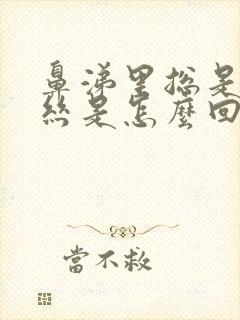 鼻涕里總是
絲是怎麼回
當不救